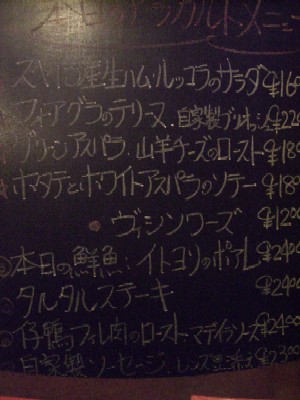 本日のアラカルトメニュー
スペイン産生ハム・ルッコラのサラダ ¥16
フォアグラのテリーヌ 自家製ブリオッシュ ¥22
グリーンアスパラ・山羊チーズのロースト ¥18
ホタテとホワイトアスパラのソテー ¥18
ヴィシソワーズ ¥12
本日の鮮魚:イトヨリのポアレ ¥240
タルタルステーキ ¥240
仔鴨フィレ肉のロースト・マデイラソース ¥240
自家製ソーセージ、レンズ豆添え ¥230